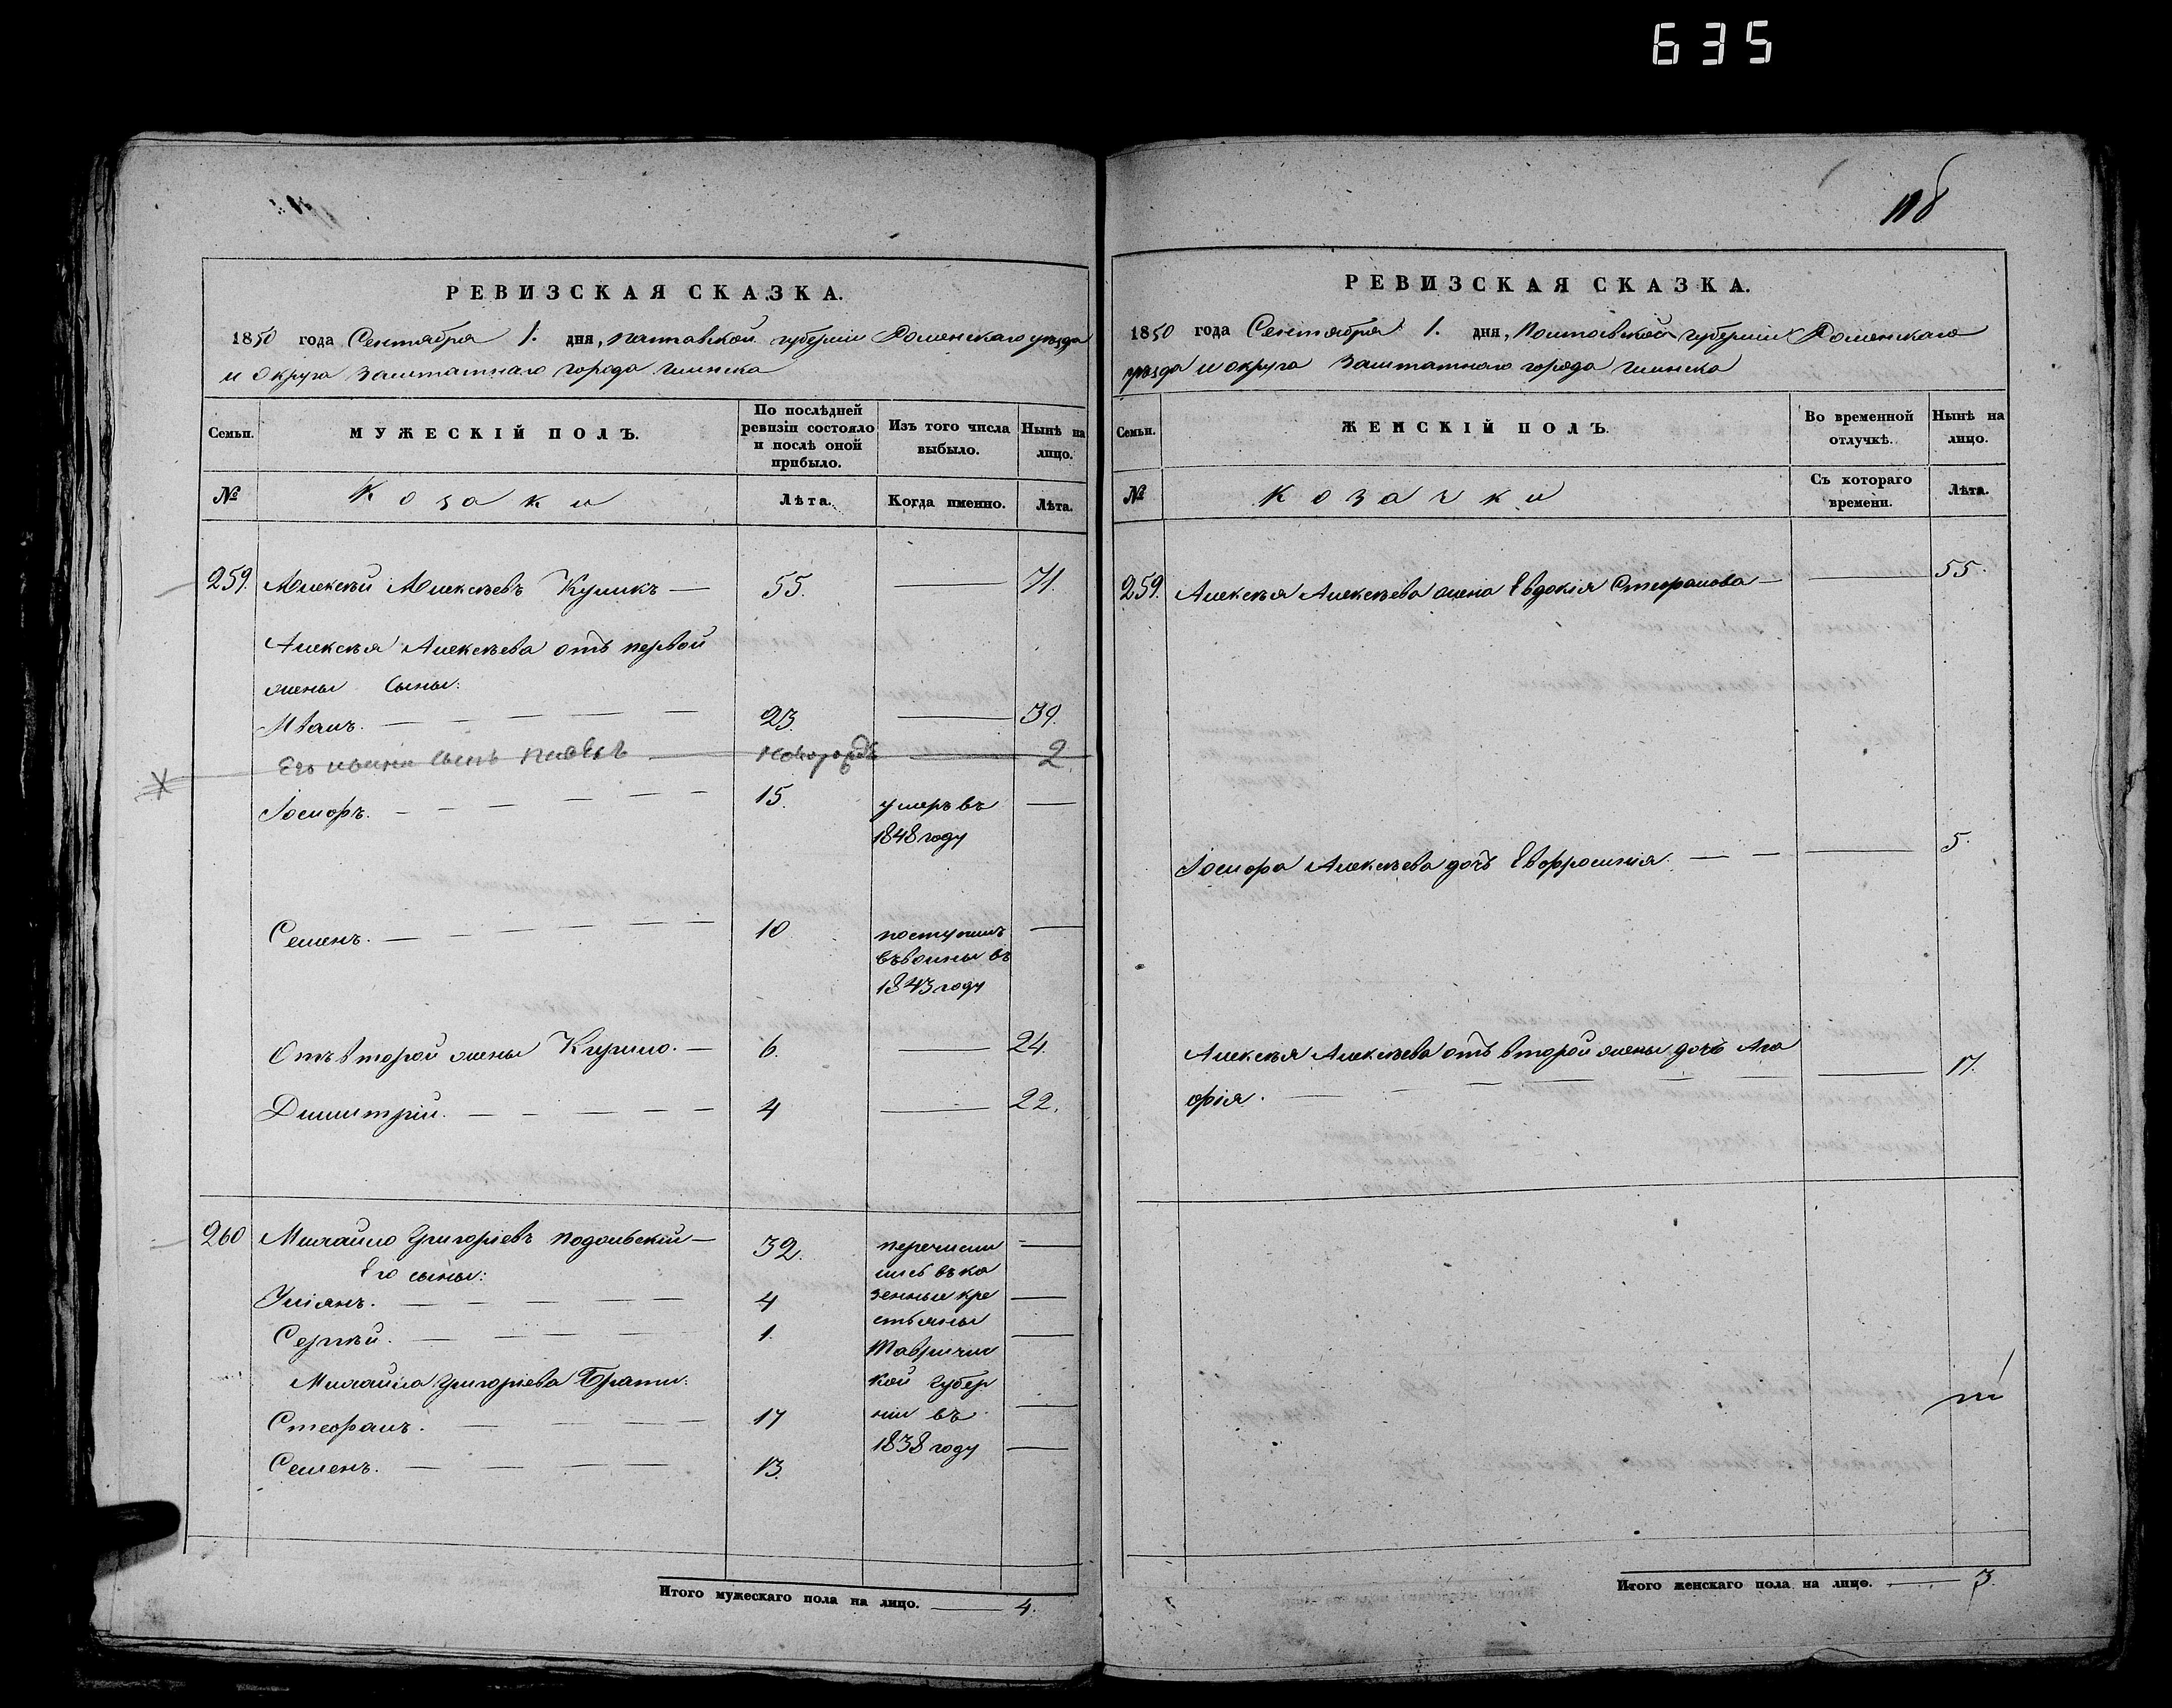 635
118
РЕВИЗСКАЯ СКАЗКА.
1850 года Сентября 1. дня, Полтавской губерніи Роменскаго уѣзда
и округа заштатнаго города Глинска
Семьи.
МУЖЕСКІЙ ПОЛЪ.
По послѣдней
ревизіи состояло
и послѣ оной
прибыло.
Изъ того числа
выбыло.
Нынѣ на
лицо.
№
Козаки
Лѣта.
Когда именно.
Лѣта.
259. Алексѣй Алексѣевъ Куликъ — 55. — 71.
Алексѣя Алексѣева отъ первой
жены сыны:
Иванъ. — 23. — 39.
Его Ивана сынъ — новорожд — 2
Іосифъ. — 15. умеръ въ —
1848 году
Семенъ. — 10 поступилъ —
въ воины въ
1843 году
Отъ второй жены Кирило. — 6. — 24.
Димитрій. — 4 — 22.
260 Михайло Григоріевъ Подольскій — 32. перечисли —
Его сыны: лись въ ка
Уліянъ. — 4 зенные кре —
стьяны
Сергѣй. — 1. Тавричис —
Михайла Григоріева братья: кой губер
Стефанъ. — 17 ніи въ —
Семенъ. — 13. 1838 году —
Итого мужескаго пола на лицо. — 4.
РЕВИЗСКАЯ СКАЗКА.
1850 года Сентября 1. дня, Полтавской губерніи Роменскаго
уѣзда и округа заштатнаго города Глинска
Семьи.
ЖЕНСКІЙ ПОЛЪ.
Во временной
отлучкѣ.
Нынѣ на
лицо.
№
Козачки
Съ котораго
времени.
Лѣта.
259. Алексѣя Алексѣева жена Евдокія Стефанова — 55.
Іосифа Алексѣева дочь Евфросинія. — 5.
Алексѣя Алексѣева отъ второй жены дочь Ага
фія. — 17.
Итого женскаго пола на лицо. — 3.